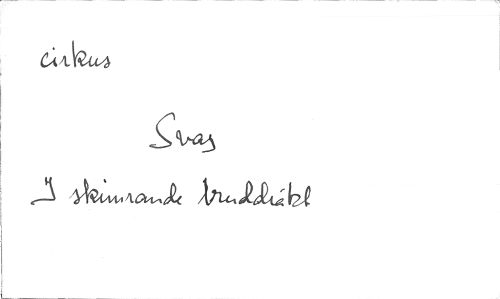 cirkus
Svas
I skimrande bruddräkt